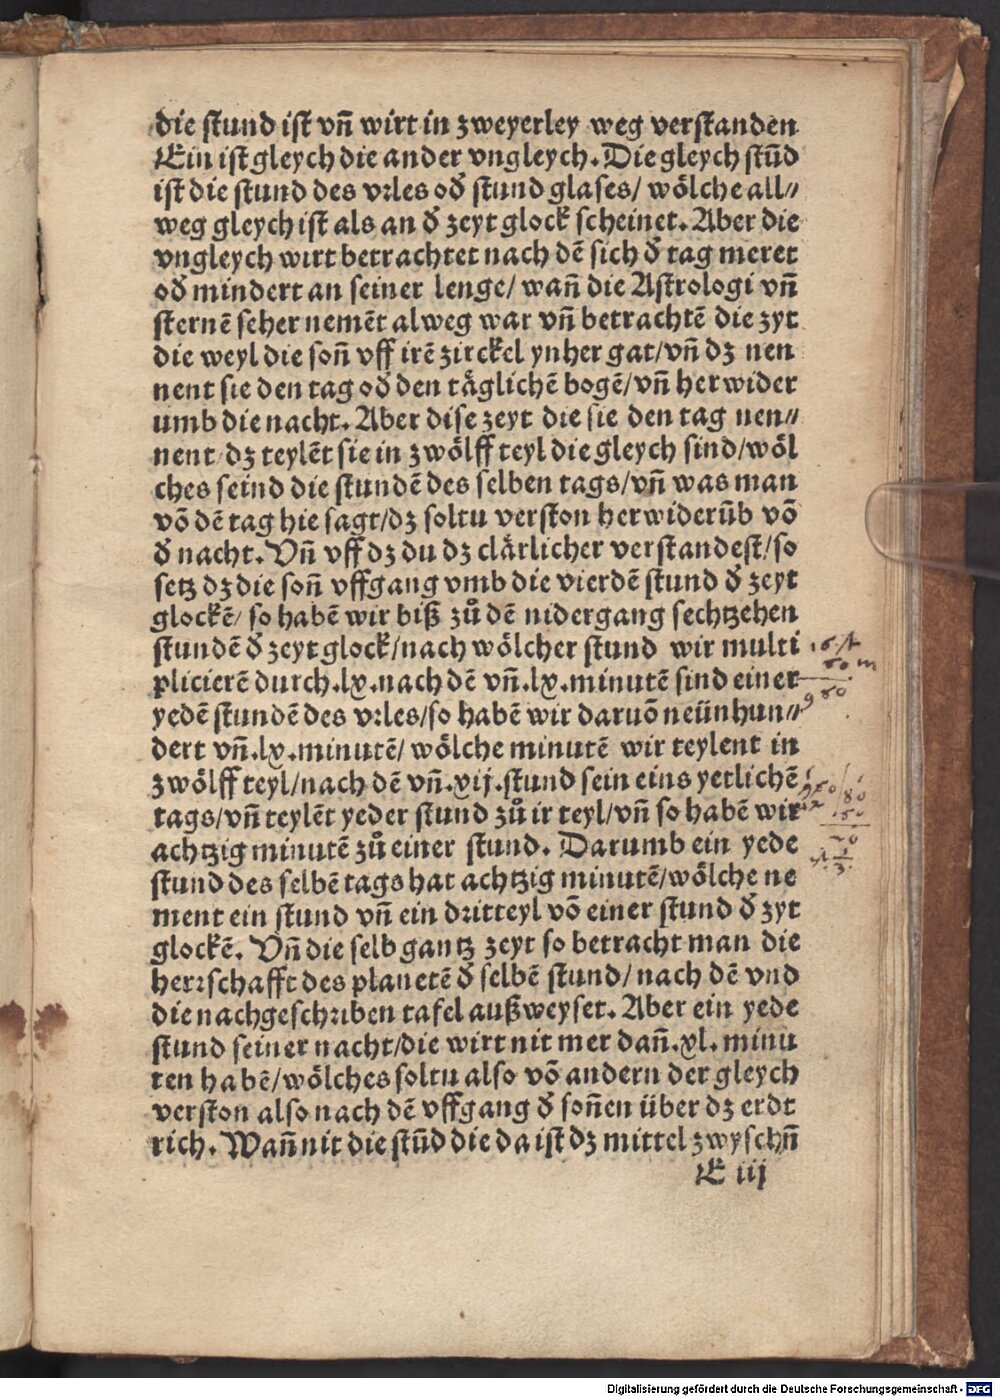 die stund ist vn̄ wirt in zweyerley weg verstanden
Ein ist gleych die ander vngleych. Die gleych stūd
ist die stund des vrles od̛ stund glases/ wölche all⸗
weg gleych ist als an d̛ zeyt glock scheinet. Aber die
vngleych wirt betrachtet nach dē sich d̛ tag meret
od̛ mindert an seiner lenge/ wan̄ die Astrologi vn̄
sternē seher nemēt alweg war vn̄ betrachtē die zyt
die weyl die son̄ vff irē zirckel ynher gat/vn̄ dz nen
nent sie den tag od̛ den täglichē bogē/vn̄ her wider
umb die nacht. Aber dise zeyt die sie den tag nen⸗
nent dz teylēt sie in zwölff teyl die gleych sind/wöl
ches seind die stundē des selben tags/vn̄ was man
vō dē tag hie sagt/dz soltu verston her widerūb vō
d̛ nacht. Vn̄ vff dz du dz clärlicher verstandest/so
setz dz die son̄ vffgang vmb die vierdē stund d̛ zeyt
glockē/ so habē wir biß zů dē nidergang sechtzehen
stundē d̛ zeyt glock/nach wölcher stund wir multi
plicierē durch.lx.nach dē vn̄.lx.minutē sind einer
yedē stundē des vrles/so habē wir daruō neünhun⸗
dert vn̄.lx.minutē/ wölche minutē wir teylent in
zwölff teyl/nach dē vn̄.xij.stund sein eins yetlichē
tags/vn̄ teylēt yeder stund zů ir teyl/vn̄ so habē wir
achtzig minutē zů einer stund. Darumb ein yede
stund des selbē tags hat achtzig minutē/wölche ne
ment ein stund vn̄ ein dritteyl vō einer stund d̛ zyt
glockē. Vn̄ die selb gantz zeyt so betracht man die
herrschafft des planetē d̛ selbē stund/ nach dē vnd
die nachgeschriben tafel außweyset. Aber ein yede
stund seiner nacht/die wirt nit mer dan̄.xl. minu
ten habē/wölches soltu also vō andern der gleych
verston also nach dē vffgang d̛ son̄en über dz erdt
rich. Wan̄ nit die stūd die da ist dz mittel zwyschn̄
E iij
60 m
Digitalisierung gefördert durch die Deutsche Forschungsgemeinschaft - DFG